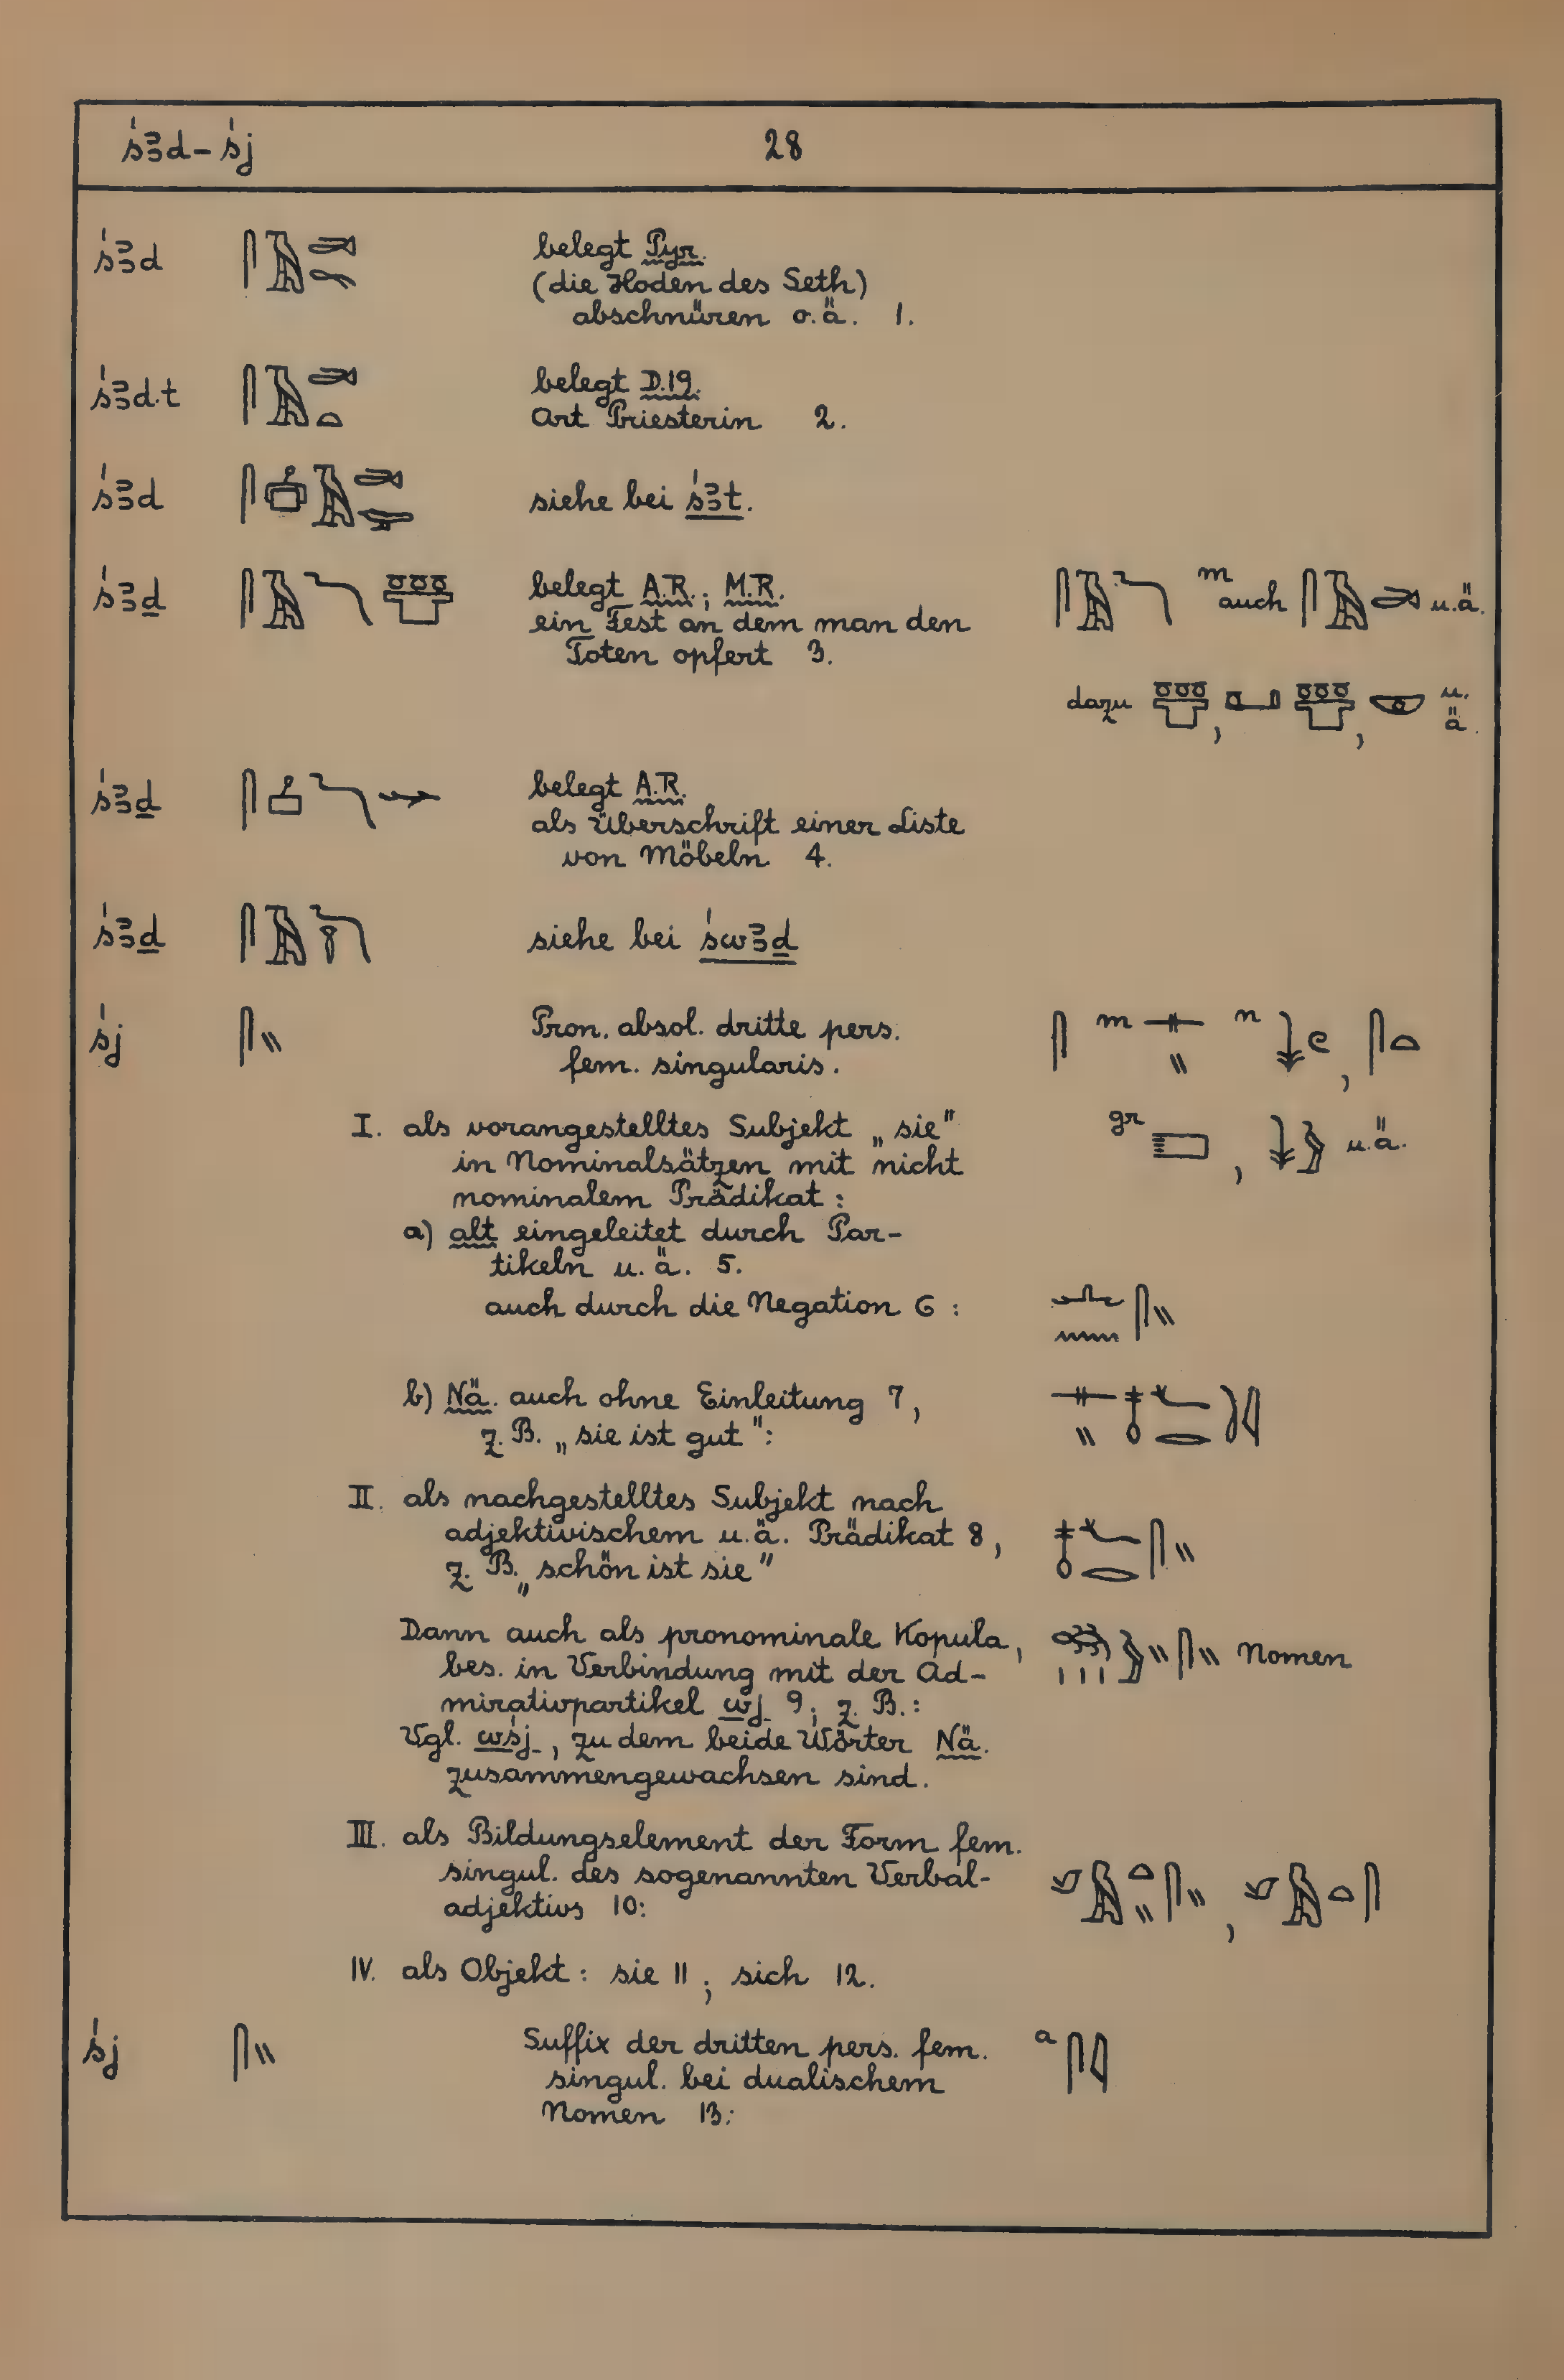 ś3d – śj 28
ś3d belegt Pyr.
(die Hoden des Seth)
abschnüren o.ä. 1.
ś3d.t belegt D.19.
Art Priesterin 2.
ś3d siehe bei ś3t.
ś3ḏ belegt A.R.; M.R. m auch u.ä.
ein Fest an dem man den
Toten opfert 3.
dazu , , u.ä.
ś3ḏ belegt A.R.
als Überschrift einer Liste
von Möbeln 4.
ś3ḏ siehe bei św3ḏ
śj Pron. absol. dritte pers. m n ,
fem. singularis.
I. als vorangestelltes Subjekt „sie" gr , u.ä.
in Nominalsätzen mit nicht
nominalem Prädikat:
a) alt eingeleitet durch Par-
tikeln u.ä. 5.
auch durch die Negation 6:
b) Nä. auch ohne Einleitung 7,
z.B. „sie ist gut":
II. als nachgestelltes Subjekt nach
adjektivischem u.ä. Prädikat 8,
z.B. „schön ist sie"
Dann auch als pronominale Kopula, Nomen
bes. in Verbindung mit der Ad-
mirativpartikel wj 9; z.B.:
Vgl. wśj, zu dem beide Wörter Nä.
zusammengewachsen sind.
III. als Bildungselement der Form fem.
singul. des sogenannten Verbal-
adjektivs 10: ,
IV. als Objekt: sie 11; sich 12.
śj Suffix der dritten pers. fem. a
singul. bei dualischem
Nomen 13: